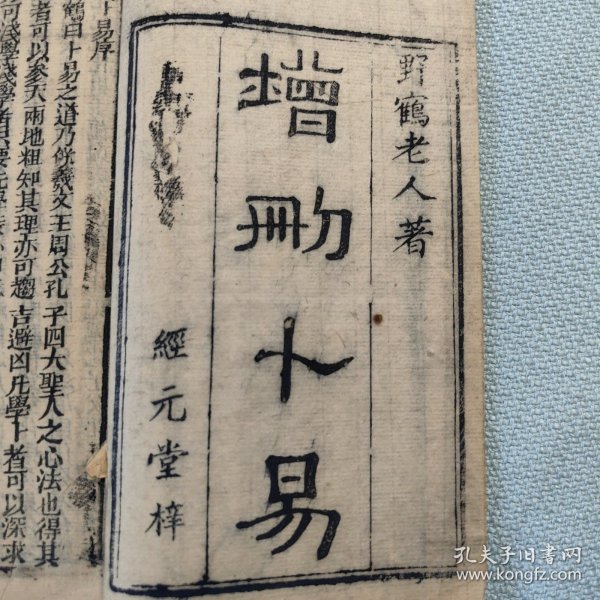 野鶴老人著
增刪卜易
經元堂梓
卜易序
鶴曰卜易之道乃伏羲文王周公孔子四大聖人之心法也得其
者可以參天兩地粗知其理亦可趨吉避凶凡學卜者可以深求
孔夫子旧书网
www.kongfz.com